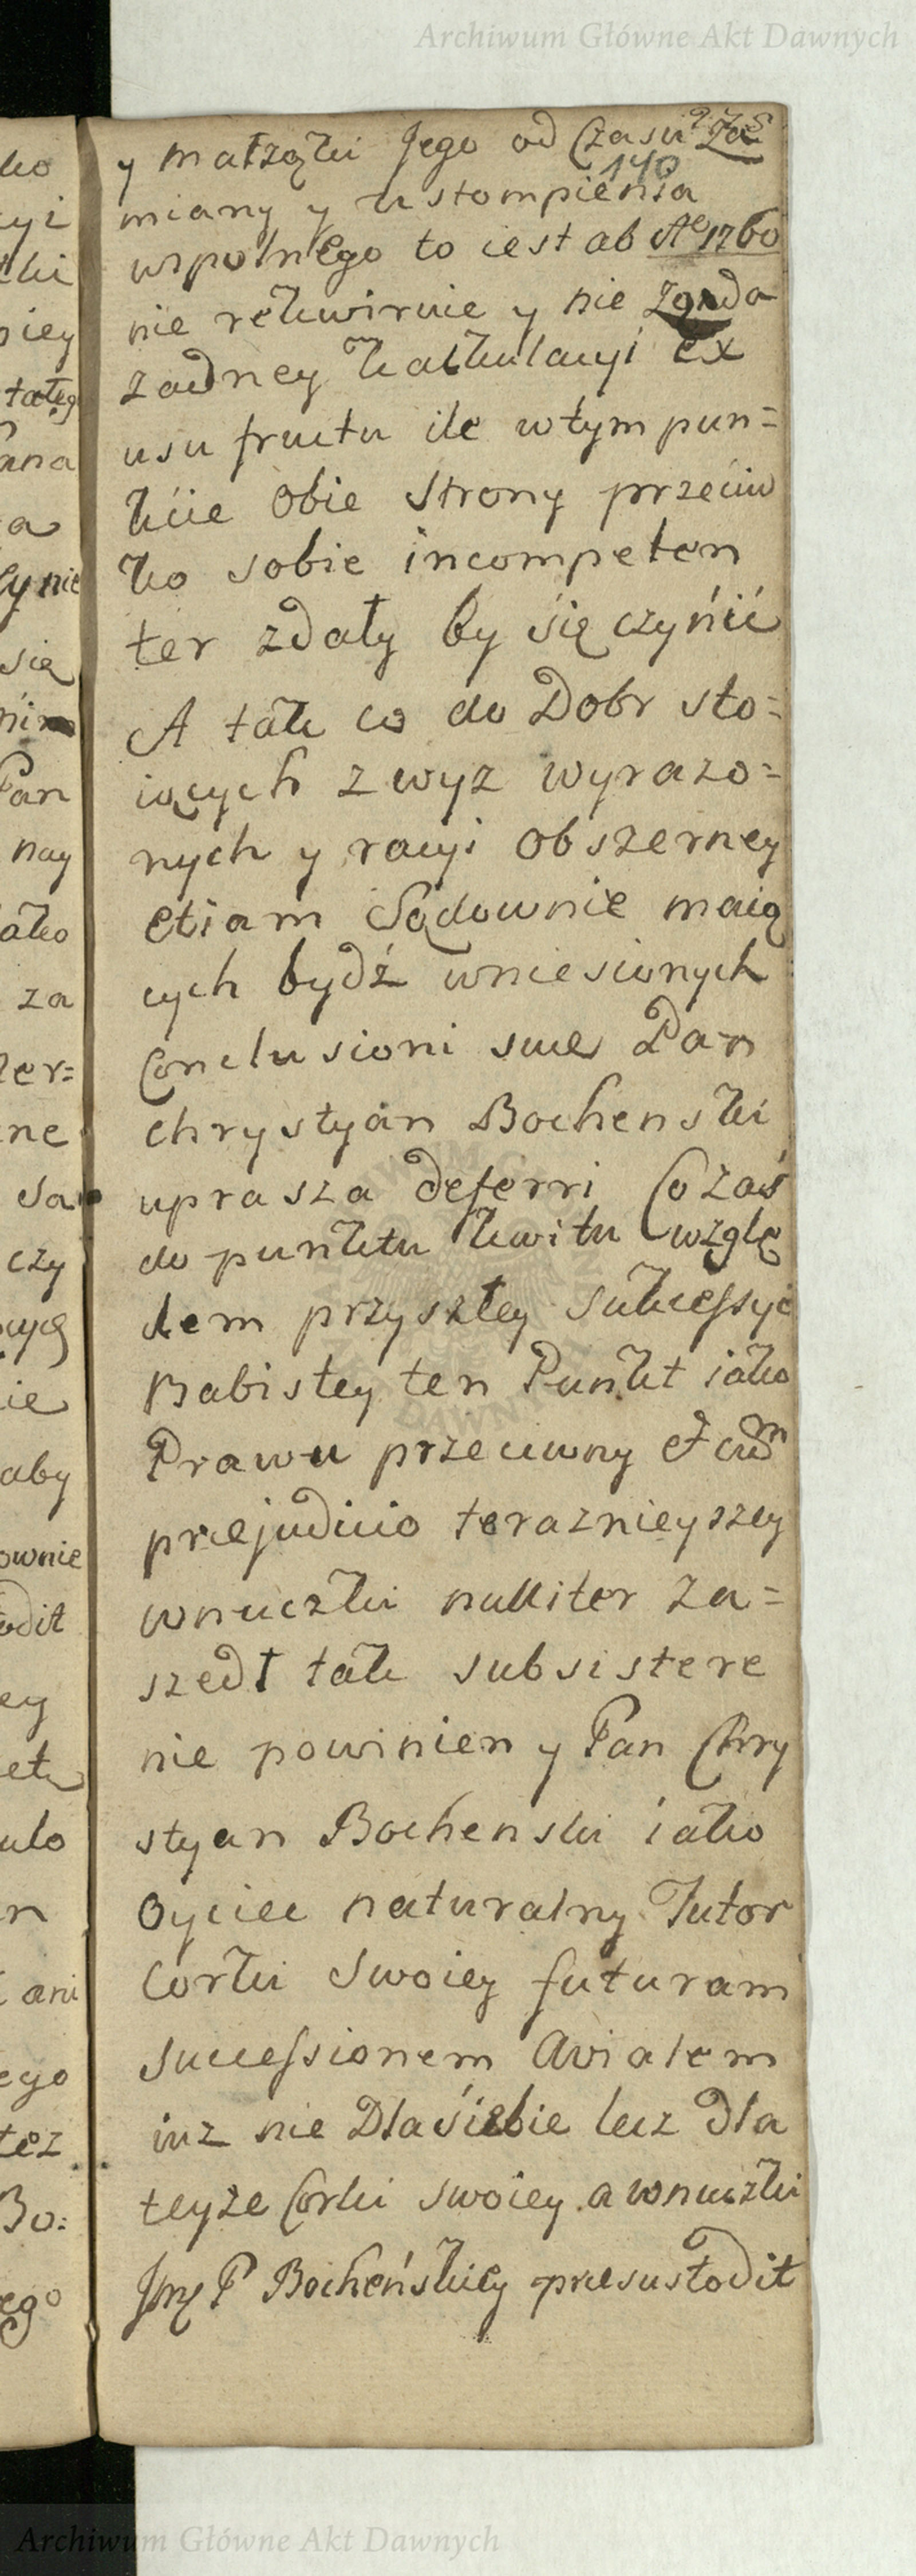 Archiwum Główne Akt Dawnych
y małząki Jego od Czasu Za
140
miany y Ustompienia
wspolnego to iest ab Aº 1760
nie rekwiruie y nie ządа
zadney kalkulacyi ex
usu fructu ile w tym pun=
kcie obie Strony przeciw
ko sobie incompeten
ter zdały by się czynić
A tak co do Dobr sto=
iących zwyz wyrazo=
nych y racyi obszerney
etiam Sądownie maią
cych bydź wniesionych
Conclusioni suæ Pan
Chrystyan Bochenski
uprasza deferri Co zaś
do punktu kwitu wzglę
dem przyszłey Sukcessyi
Babistey ten Punkt iako
Prawu przeciwny et cum
præjudicio teraznieyszey
wnuczki nulliter za=
szedł tak subsistere
nie powinien y Pan Chry
styan Bochenski iako
Oyciec naturalny Tutor
Corki Swoiey futuram
Successionem Avialem
iuz nie Dla siebie lecz dla
teyze Corki swoiey a wnuczki
Jmę P Bocheńskiey præcustodit
Archiwum Główne Akt Dawnych